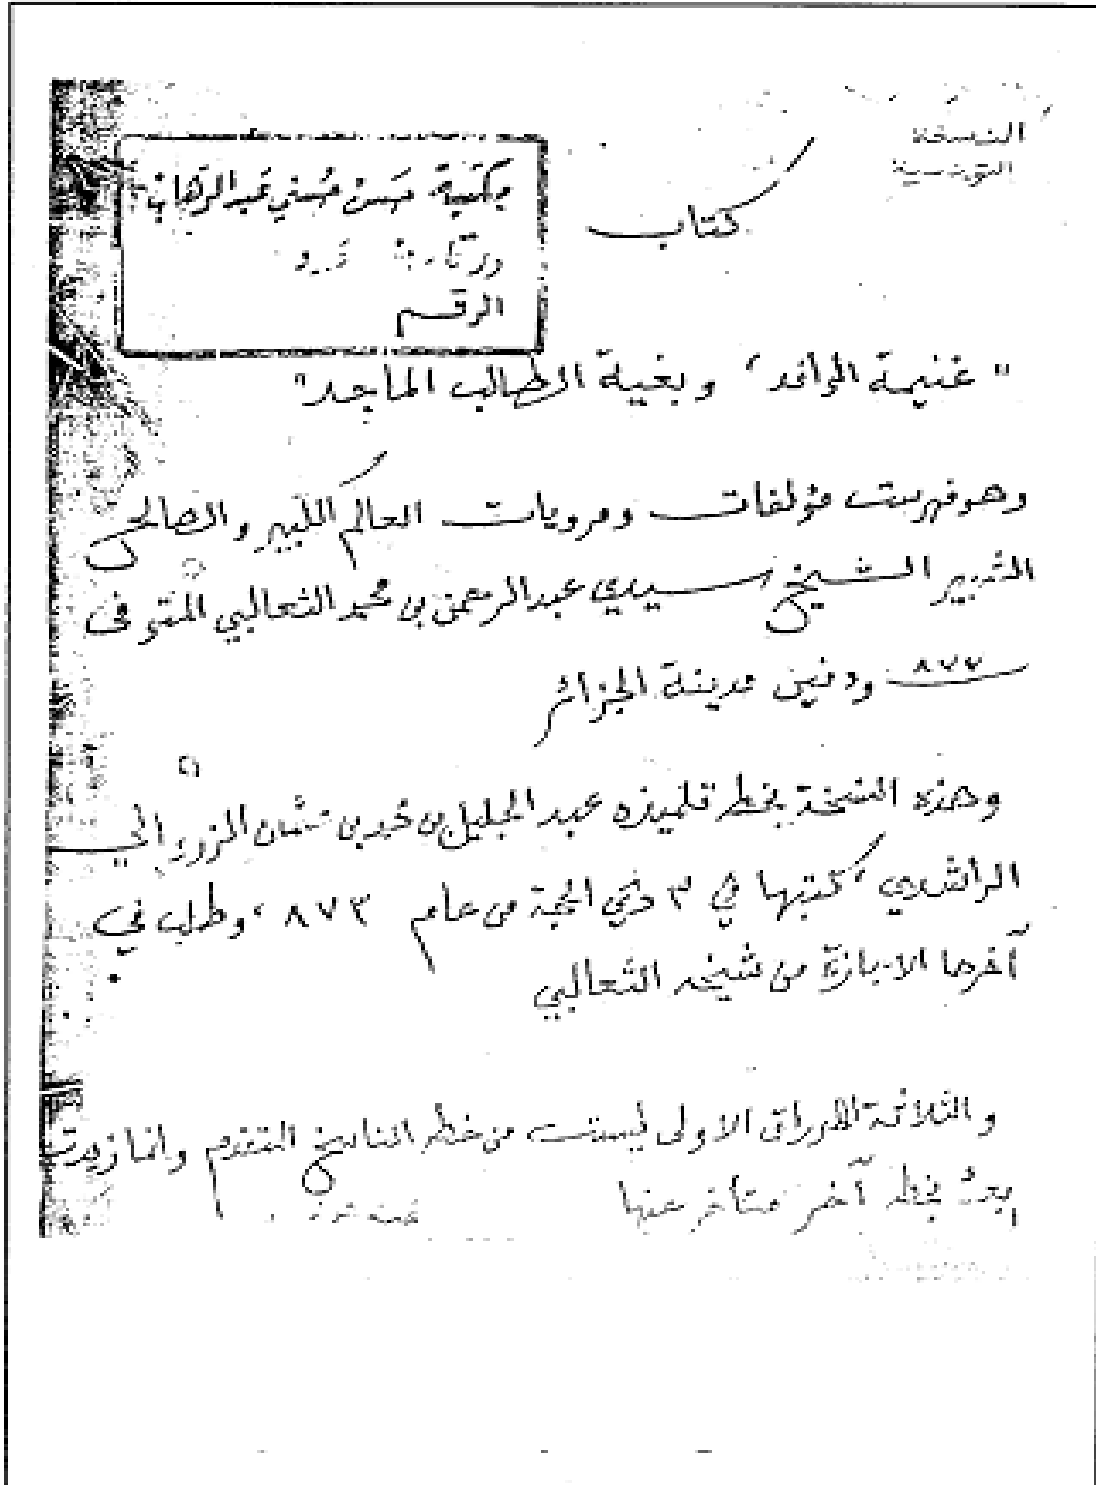 النسخة
التونسية
مكتبة حسن حسني عبد الوهاب
الرقم
كتاب
" غنيمة الوافد، وبغية الطالب الماجد"
وهو فهرست مؤلفات ومرويات العالم الكبير والصالح
الشهير الشيخ سيدي عبد الرحمن بن محمد الثعالبي المتوفى
٨٧٧ ودفين مدينة الجزائر
وهذه النسخة بخط تلميذه عبد الجليل بن محمد بن عثمان الزروالي
الراشدي، كتبها في ٣ ذي الحجة من عام ٨٧٣، وطلب في
آخرها الاجازة من شيخه الثعالبي
والثلاثة الاوراق الاولى ليست من خط الناسخ المتقدم وانما زيدت
بعد بخط آخر متأخر عنها